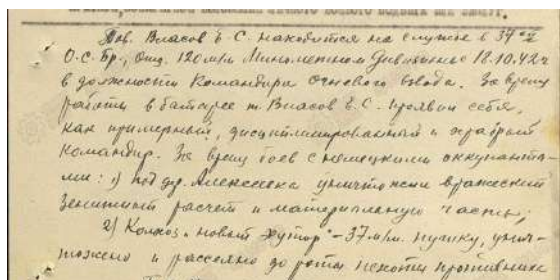 Тов. Власов Б. С. находится на службе в 34 ой
О.С.Бр., Отд. 120 м/м Минометном Дивизионе 18.10.42 г
в должности Командира Огневого взвода. За время
работы в батарее т. Власов Б.С. проявил себя,
как примерный, дисциплинированный и храбрый
Командир. За время боев с немецкими оккупанта-
ми: 1) под дер. Алексеевка уничтожен вражеский
Зенитный расчет и материальную часть;
2) Колхоз "новый хутор" - 37 м/м. пушку, унич-
тожено и рассеяно до роты пехоты противника